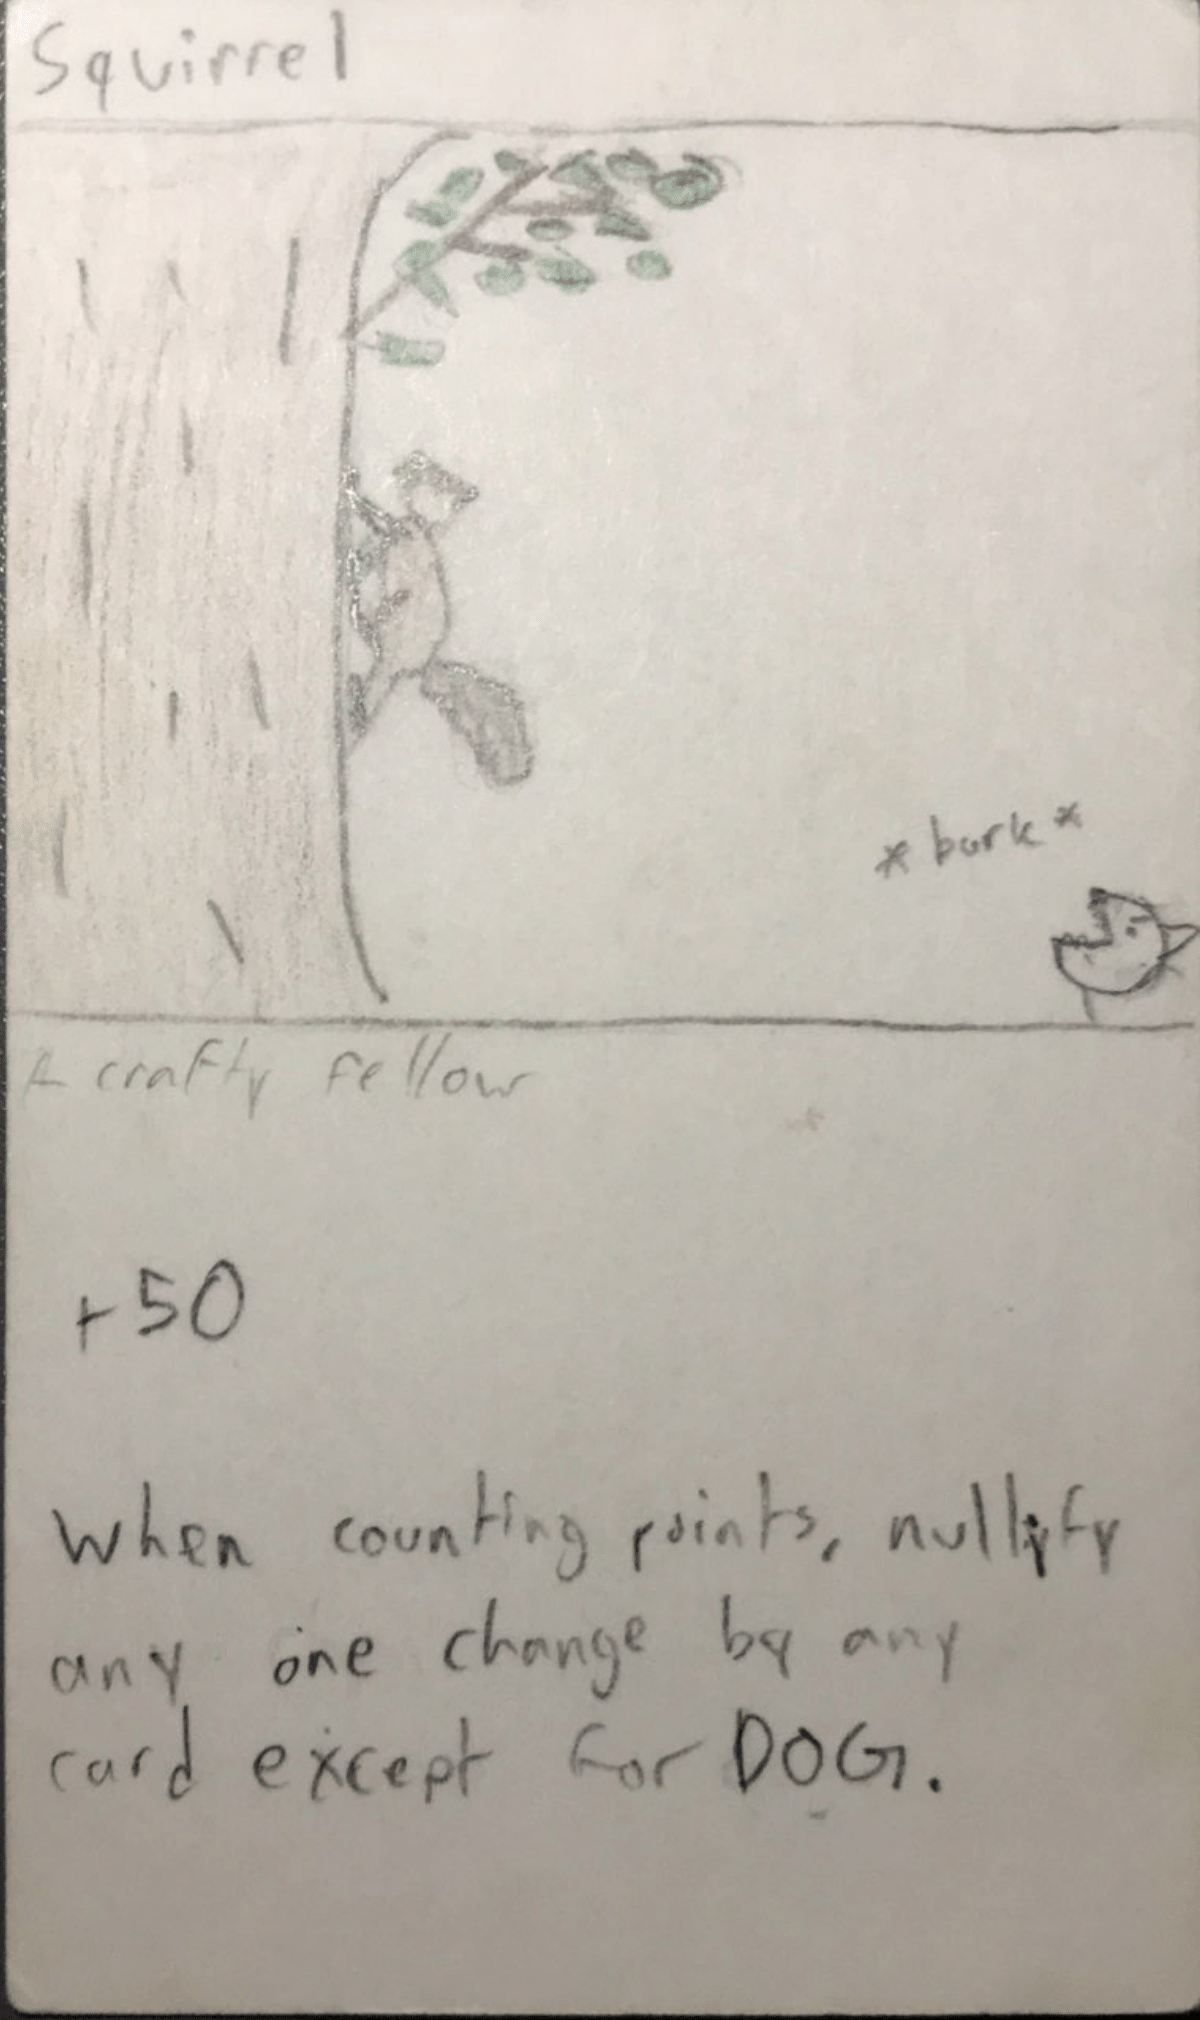 Squirrel
*bark*
A crafty fellow
+50
When counting points, nullify
any one change by any
card except for DOG.